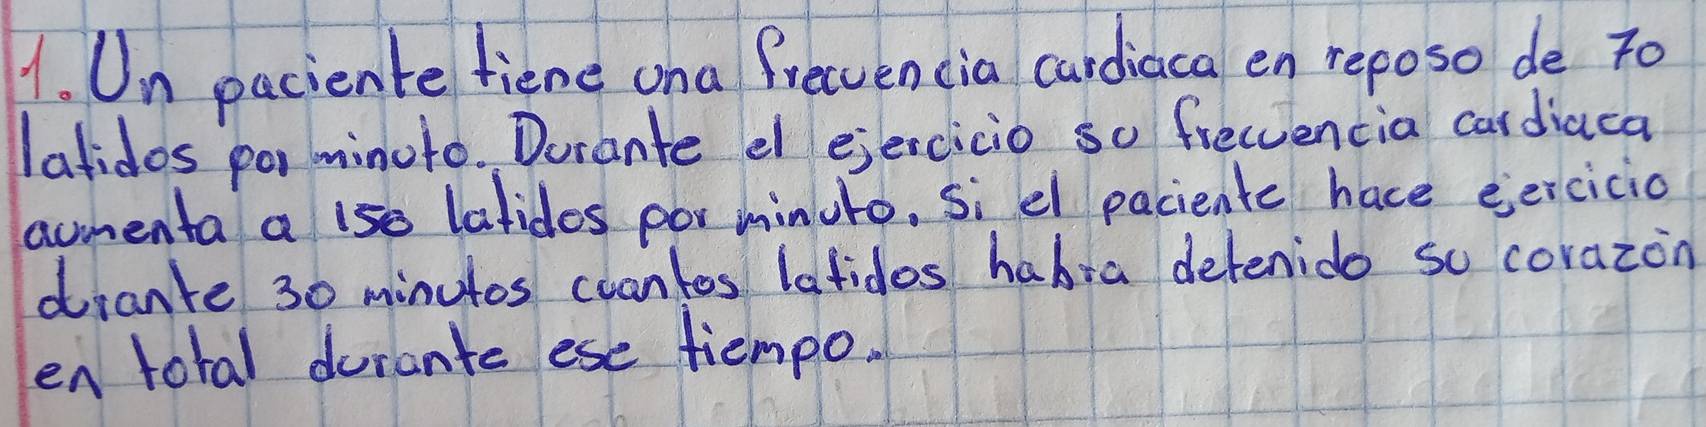 1. Un paciente tiene una frecuencia cardiaca en reposo de 70
latidos por minuto. Durante el ejercicio su frecuencia cardiaca
aumenta a 150 latidos por minuto. Si el paciente hace ejercicio
durante 30 minutos cuantos latidos habra detenido su corazón
en total durante ese tiempo.